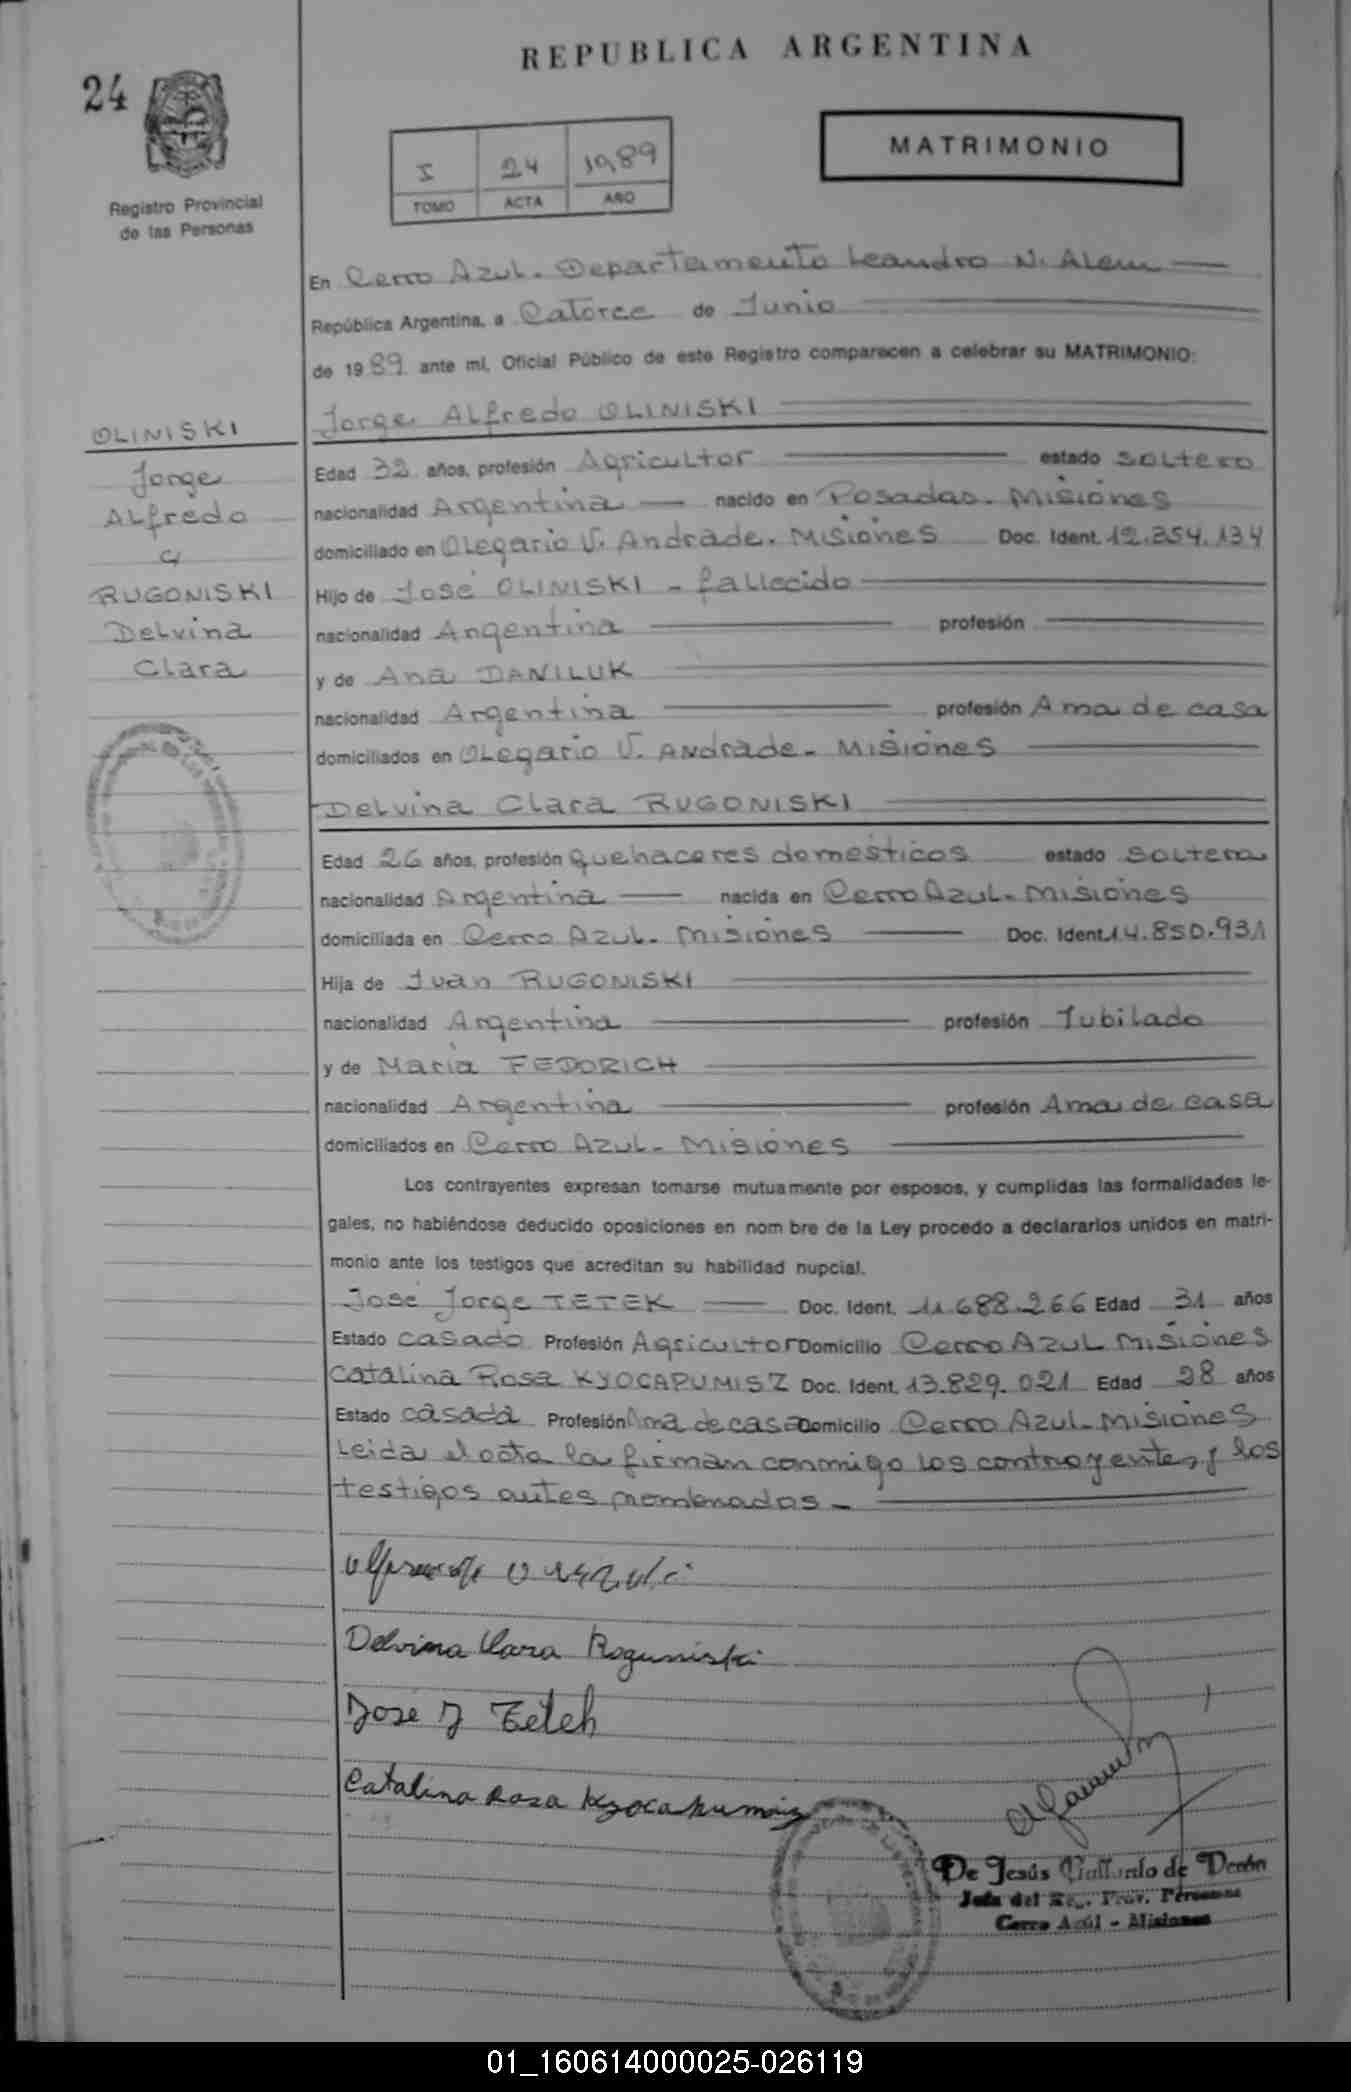 REPUBLICA ARGENTINA
24
MATRIMONIO
I 24 1989
TOMO ACTA AÑO
Registro Provincial
de las Personas
En Cerro Azul. Departamento Leandro N. Alem
República Argentina, a Catorce de Junio
de 1989 ante mí, Oficial Público de este Registro comparecen a celebrar su MATRIMONIO:
OLINISKI
Jorge
Alfredo
y
RUGONISKI
Delvina
Clara
Jorge Alfredo OLINISKI
Edad 32 años, profesión Agricultor estado soltero
nacionalidad Argentina nacido en Posadas. Misiones
domiciliado en Olegario V. Andrade. Misiones Doc. Ident. 12.254.134
Hijo de José OLINISKI - fallecido
nacionalidad Argentina profesión
y de Ana DANILUK
nacionalidad Argentina profesión Ama de casa
domiciliados en Olegario V. Andrade. Misiones
Delvina Clara RUGONISKI
Edad 26 años, profesión quehaceres domésticos estado soltera
nacionalidad Argentina nacida en Cerro Azul. Misiones
domiciliada en Cerro Azul. Misiones Doc. Ident. 14.850.931
Hija de Juan RUGONISKI
nacionalidad Argentina profesión Jubilado
y de María FEDORICH
nacionalidad Argentina profesión Ama de casa
domiciliados en Cerro Azul. Misiones
Los contrayentes expresan tomarse mutuamente por esposos, y cumplidas las formalidades le-
gales, no habiéndose deducido oposiciones en nom bre de la Ley procedo a declararlos unidos en matri-
monio ante los testigos que acreditan su habilidad nupcial.
José Jorge TETEK Doc. Ident. 11.688.266 Edad 31 años
Estado casado Profesión Agricultor Domicilio Cerro Azul Misiones
Catalina Rosa KYOCAPUMISZ Doc. Ident. 13.829.021 Edad 28 años
Estado casada Profesión Ama de casa Domicilio Cerro Azul. Misiones
Leida el acta la firman conmigo los contrayentes y los
testigos antes nombrados.
Delvina Clara Roguniski
José J Tetek
Catalina Rosa
De Jesús Gallardo de
Jefa del Reg. Prov. Personas
Cerro Azúl - Misiones
01_160614000025-026119